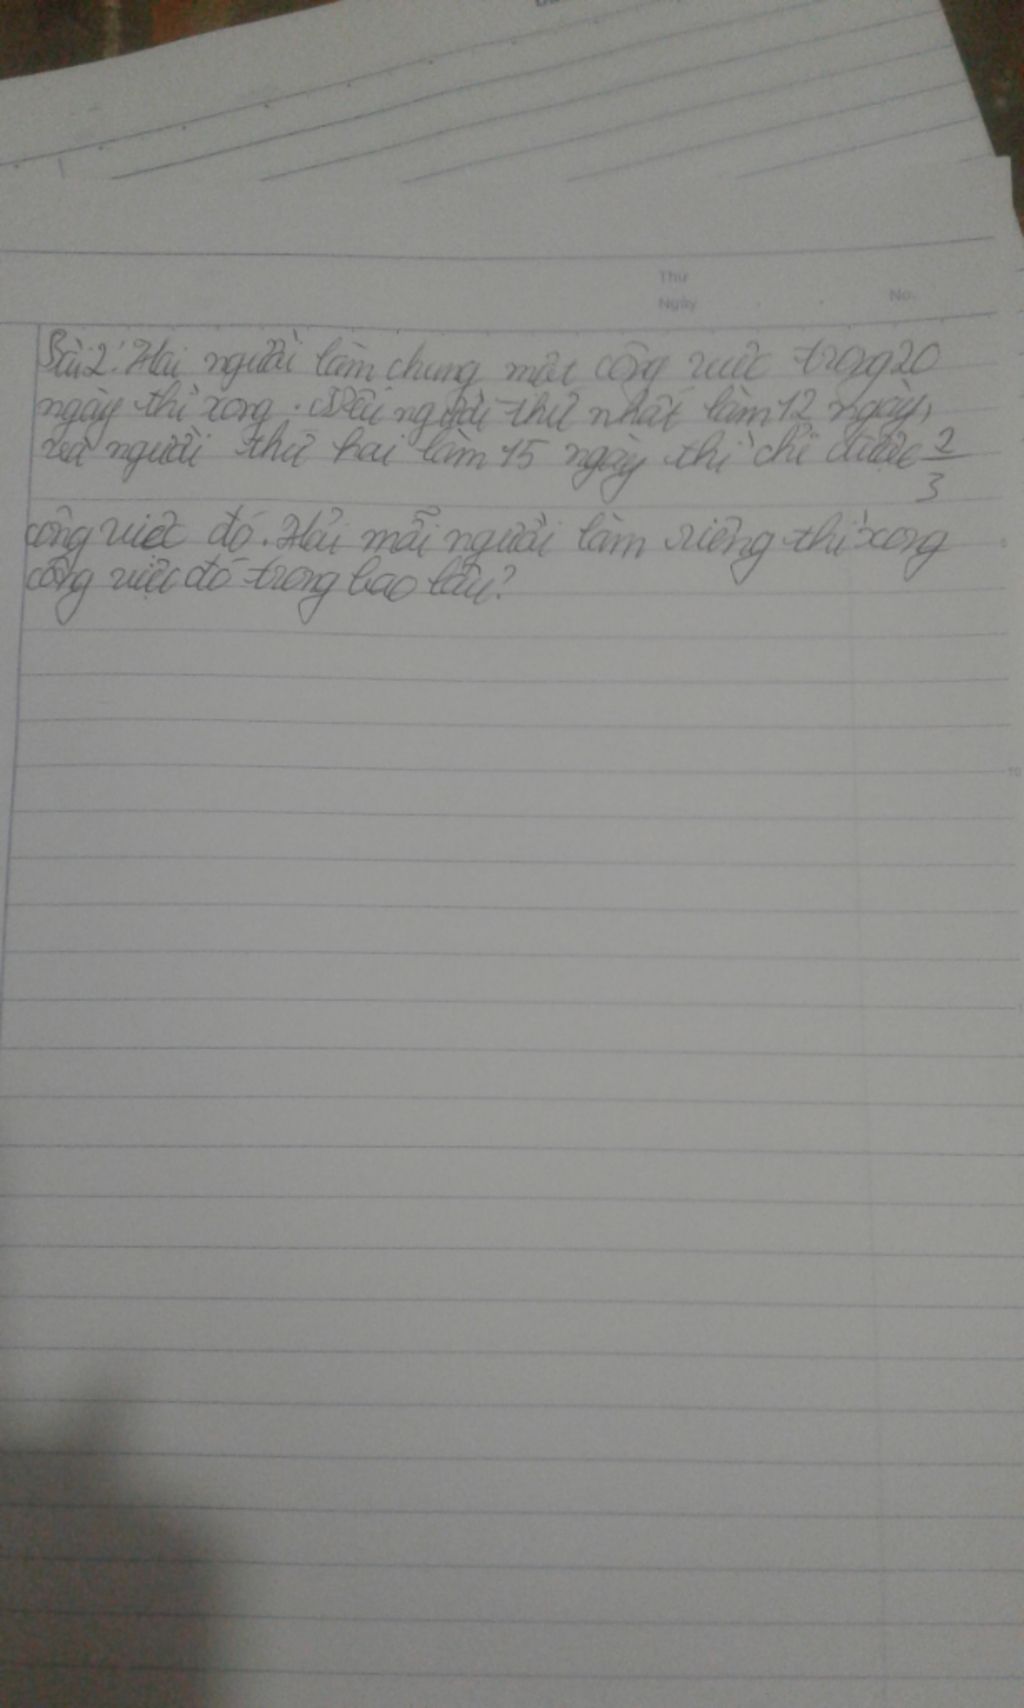 Thứ
Ngày
No.
Bài 2: Hai người làm chung một công việc trong 20
ngày thì xong. Nếu người thứ nhất làm 12 ngày,
và người thứ hai làm 15 ngày thì chỉ được 2/3
công việc đó. Hỏi mỗi người làm riêng thì xong
công việc đó trong bao lâu?
10